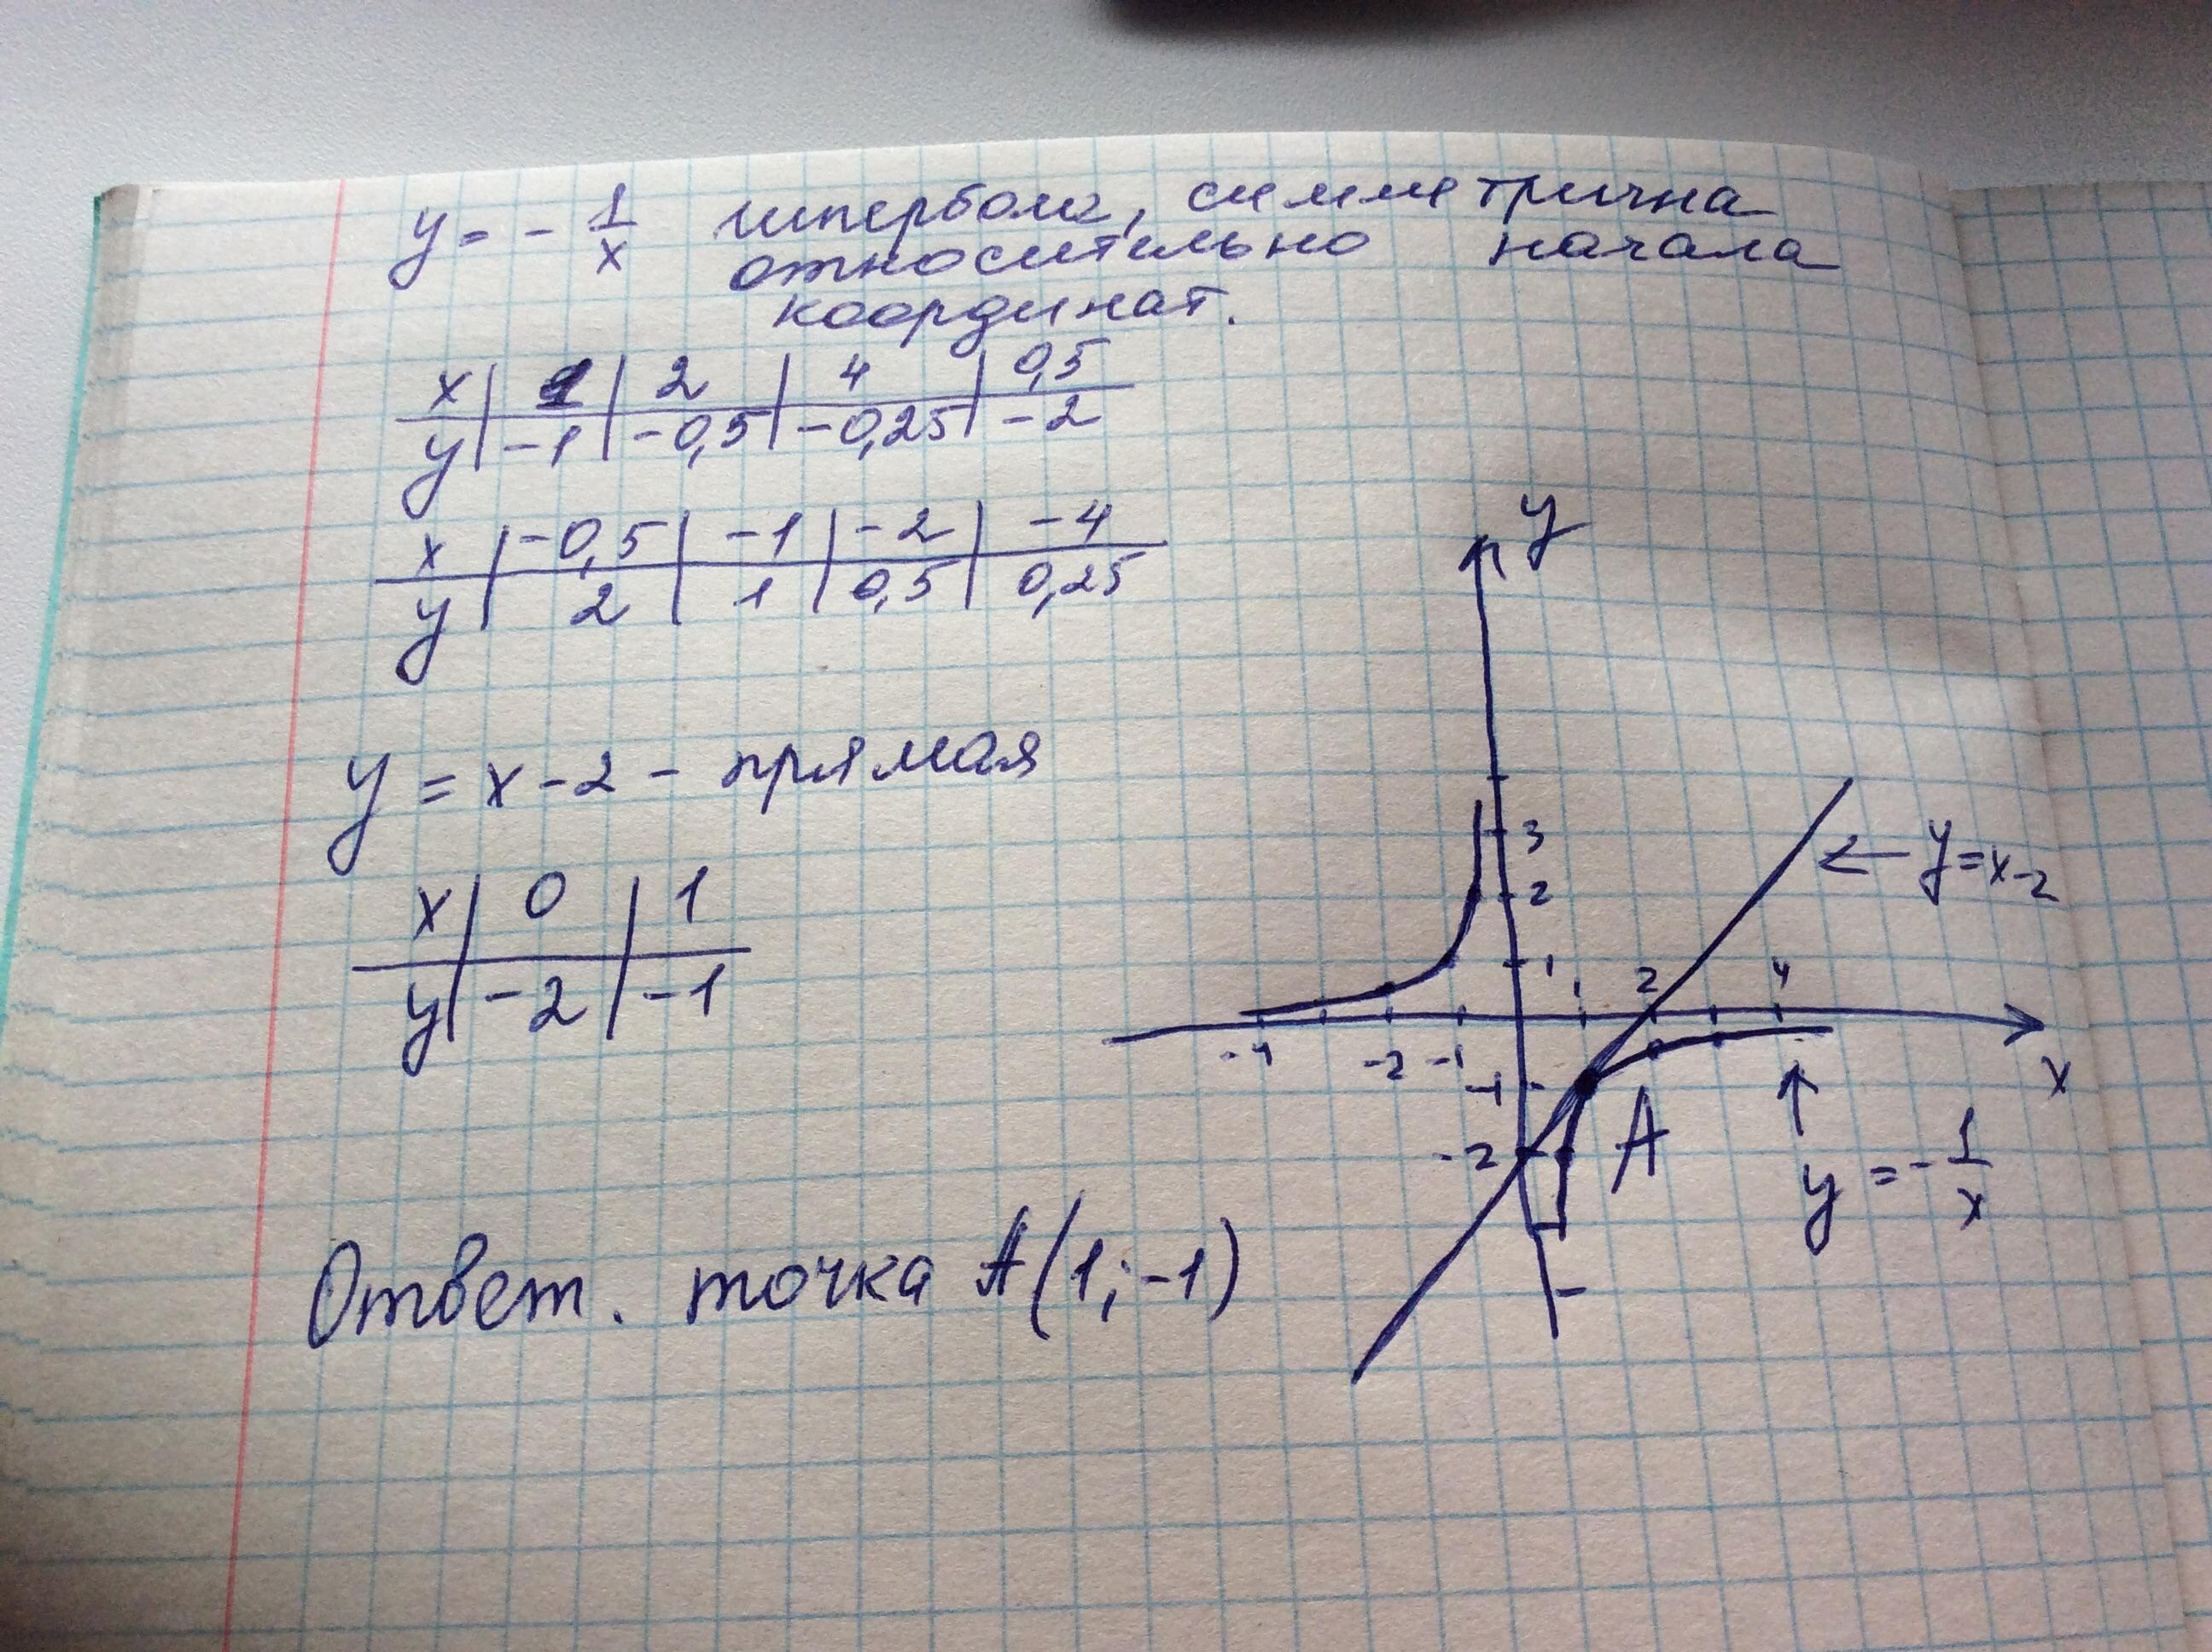 y = - 1/x гипербола, симметрична
относительно начала
координат.
x | 1 | 2 | 4 | 0,5
y | -1 | -0,5 | -0,25 | -2
x | -0,5 | -1 | -2 | -4
y | 2 | 1 | 0,5 | 0,25
y = x - 2 - прямая
x | 0 | 1
y | -2 | -1
Ответ. точка A(1; -1)
y
3
2
1
1 2 4
-4 -2 -1
x
-1
-2
A
← y = x-2
↑
y = - 1/x